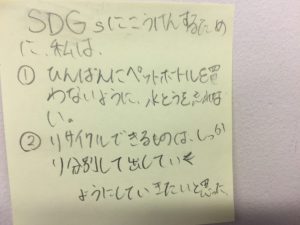 SDGsにこうけんするため
に、私は、
① ひんぱんにペットボトルを買
わないように、水とうを忘れな
い。
② リサイクルできるものは、しっか
り分別して出していく
ようにしていきたいと思った